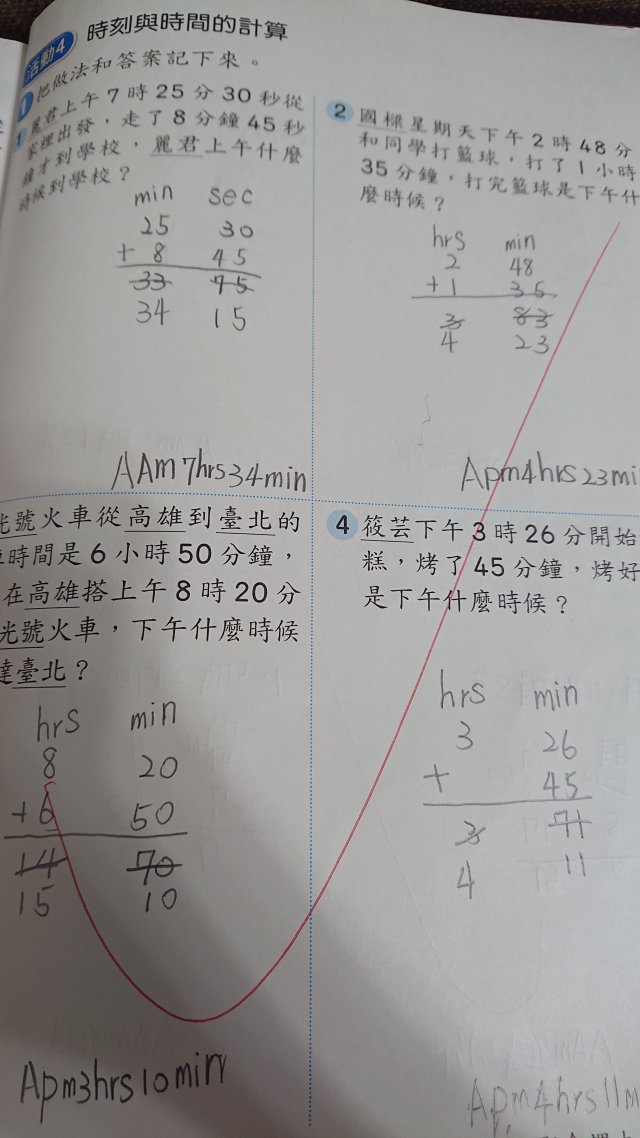 活動4 時刻與時間的計算
1 把做法和答案記下來。
1 麗君上午7時25分30秒從
家裡出發，走了8分鐘45秒
鐘才到學校，麗君上午什麼
時候到學校？
min sec
25 30
+ 8 45
33 75
34 15
AAm7hrs34min
2 國樑星期天下午2時48分
和同學打籃球，打了1小時
35分鐘，打完籃球是下午什
麼時候？
hrs min
2 48
+1 35
3 83
4 23
Apm4hrs23mi
光號火車從高雄到臺北的
時間是6小時50分鐘，
在高雄搭上午8時20分
光號火車，下午什麼時候
達臺北？
hrs min
8 20
+6 50
14 70
15 10
Apm3hrs10min
4 筱芸下午3時26分開始
糕，烤了45分鐘，烤好
是下午什麼時候？
hrs min
3 26
+ 45
3 71
4 11
Apm4hrs11m